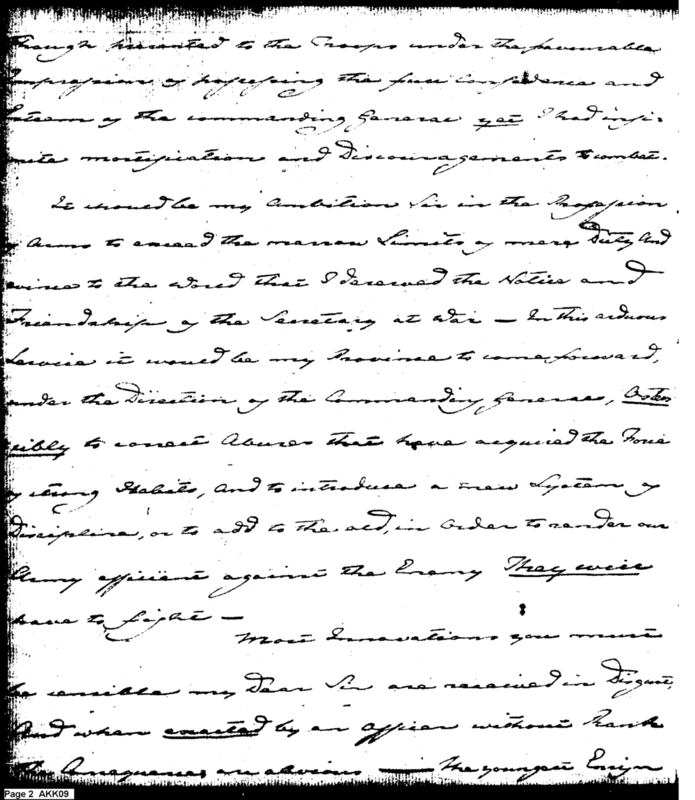 though presented to the Troops under the favourable
Impression of possessing the full Confidence and
Esteem of the commanding General yet I had infi-
nite mortification and Discouragements to combat.
It would be my Ambition Sir in the Profession
of Arms to exceed the narrow Limits of mere Duty And
evince to the World that I deserved the Notice and
Friendship of the Secretary at War — In this arduous
Service it would be my Province to come forward,
under the Direction of the Commanding General, Osten
sibly to correct Abuses that have acquired the Force
of strong Habits, And to introduce a new System of
Discipline, or to add to the old, in Order to render our
Army efficient against the Enemy They will
have to fight —
Most Innovations you must
be sensible my Dear Sir are received in Disgust,
And when exacted by an Officer without Rank
the are obvious — the youngest Ensign
Page 2 AKK09